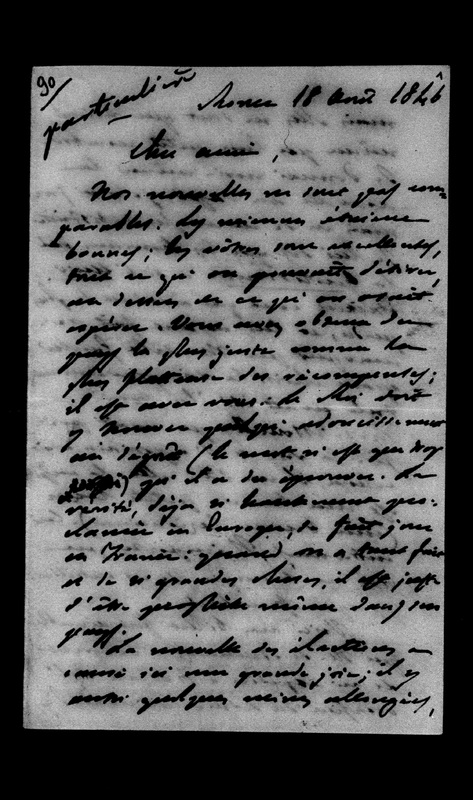 90
particulière
Rome 18 août 1846
Cher ami,
Nos nouvelles ne sont pas com-
parables. Les miennes étaient
bonnes; les vôtres sont excellentes,
tout ce qu'on pouvait désirer,
au dessus de ce qu'on osait
espérer. Vous avez obtenu du
pays la plus juste comme la
plus flatteuse des récompenses;
il est avec vous. Le Roi doit
y trouver quelque adoucissement
au dégoût (le mot n'est que trop
) qu'il a du éprouver. La
vérité, déjà si hautement pro-
clamée en Europe, se fait jour
en France: quand on a tant fait
et de si grandes choses, il est juste
d'être prophète même dans son
pays.
La nouvelle des élections a
causé ici une grande joie; il y
aussi quelques mines allongées,